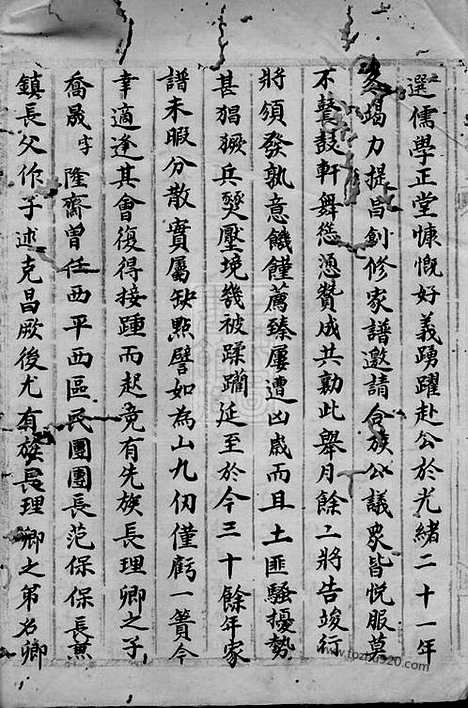 選儒學正堂慷慨好義踴躍赴公於光緒二十一年
竭力提昌創修家譜邀請合族公議眾皆悅服莫
不鼙鼓軒舞慫慂贊成共勷此舉月餘工將告竣行
將頒發孰意饑饉薦臻屢遭凶歲而且土匪騷擾勢
甚猖獗兵燹壓境幾被蹂躪延至於今三十餘年家
譜未暇分散實屬缺點譬如為山九仞僅虧一簣今
幸適逢其會復得接踵而起竟有先族長理卿之子
喬晟字隆齋曾任西平西區民團團長范保保長兼
鎮長父作子述克昌厥後尤有族長理卿之弟名卿
www.tozhu920.com